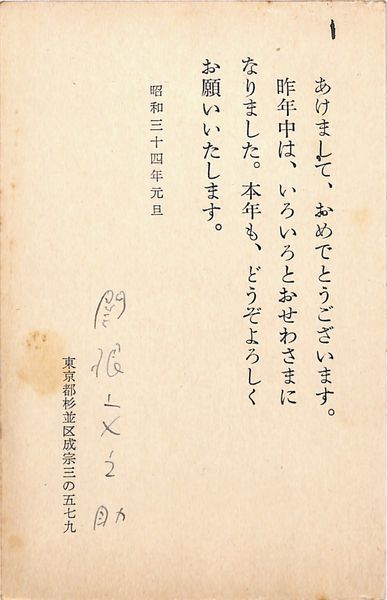 あけまして、おめでとうございます。
昨年中は、いろいろとおせわさまに
なりました。本年も、どうぞよろしく
お願いいたします。
昭和三十四年元旦
関根文之助
東京都杉並区成宗三の五七九